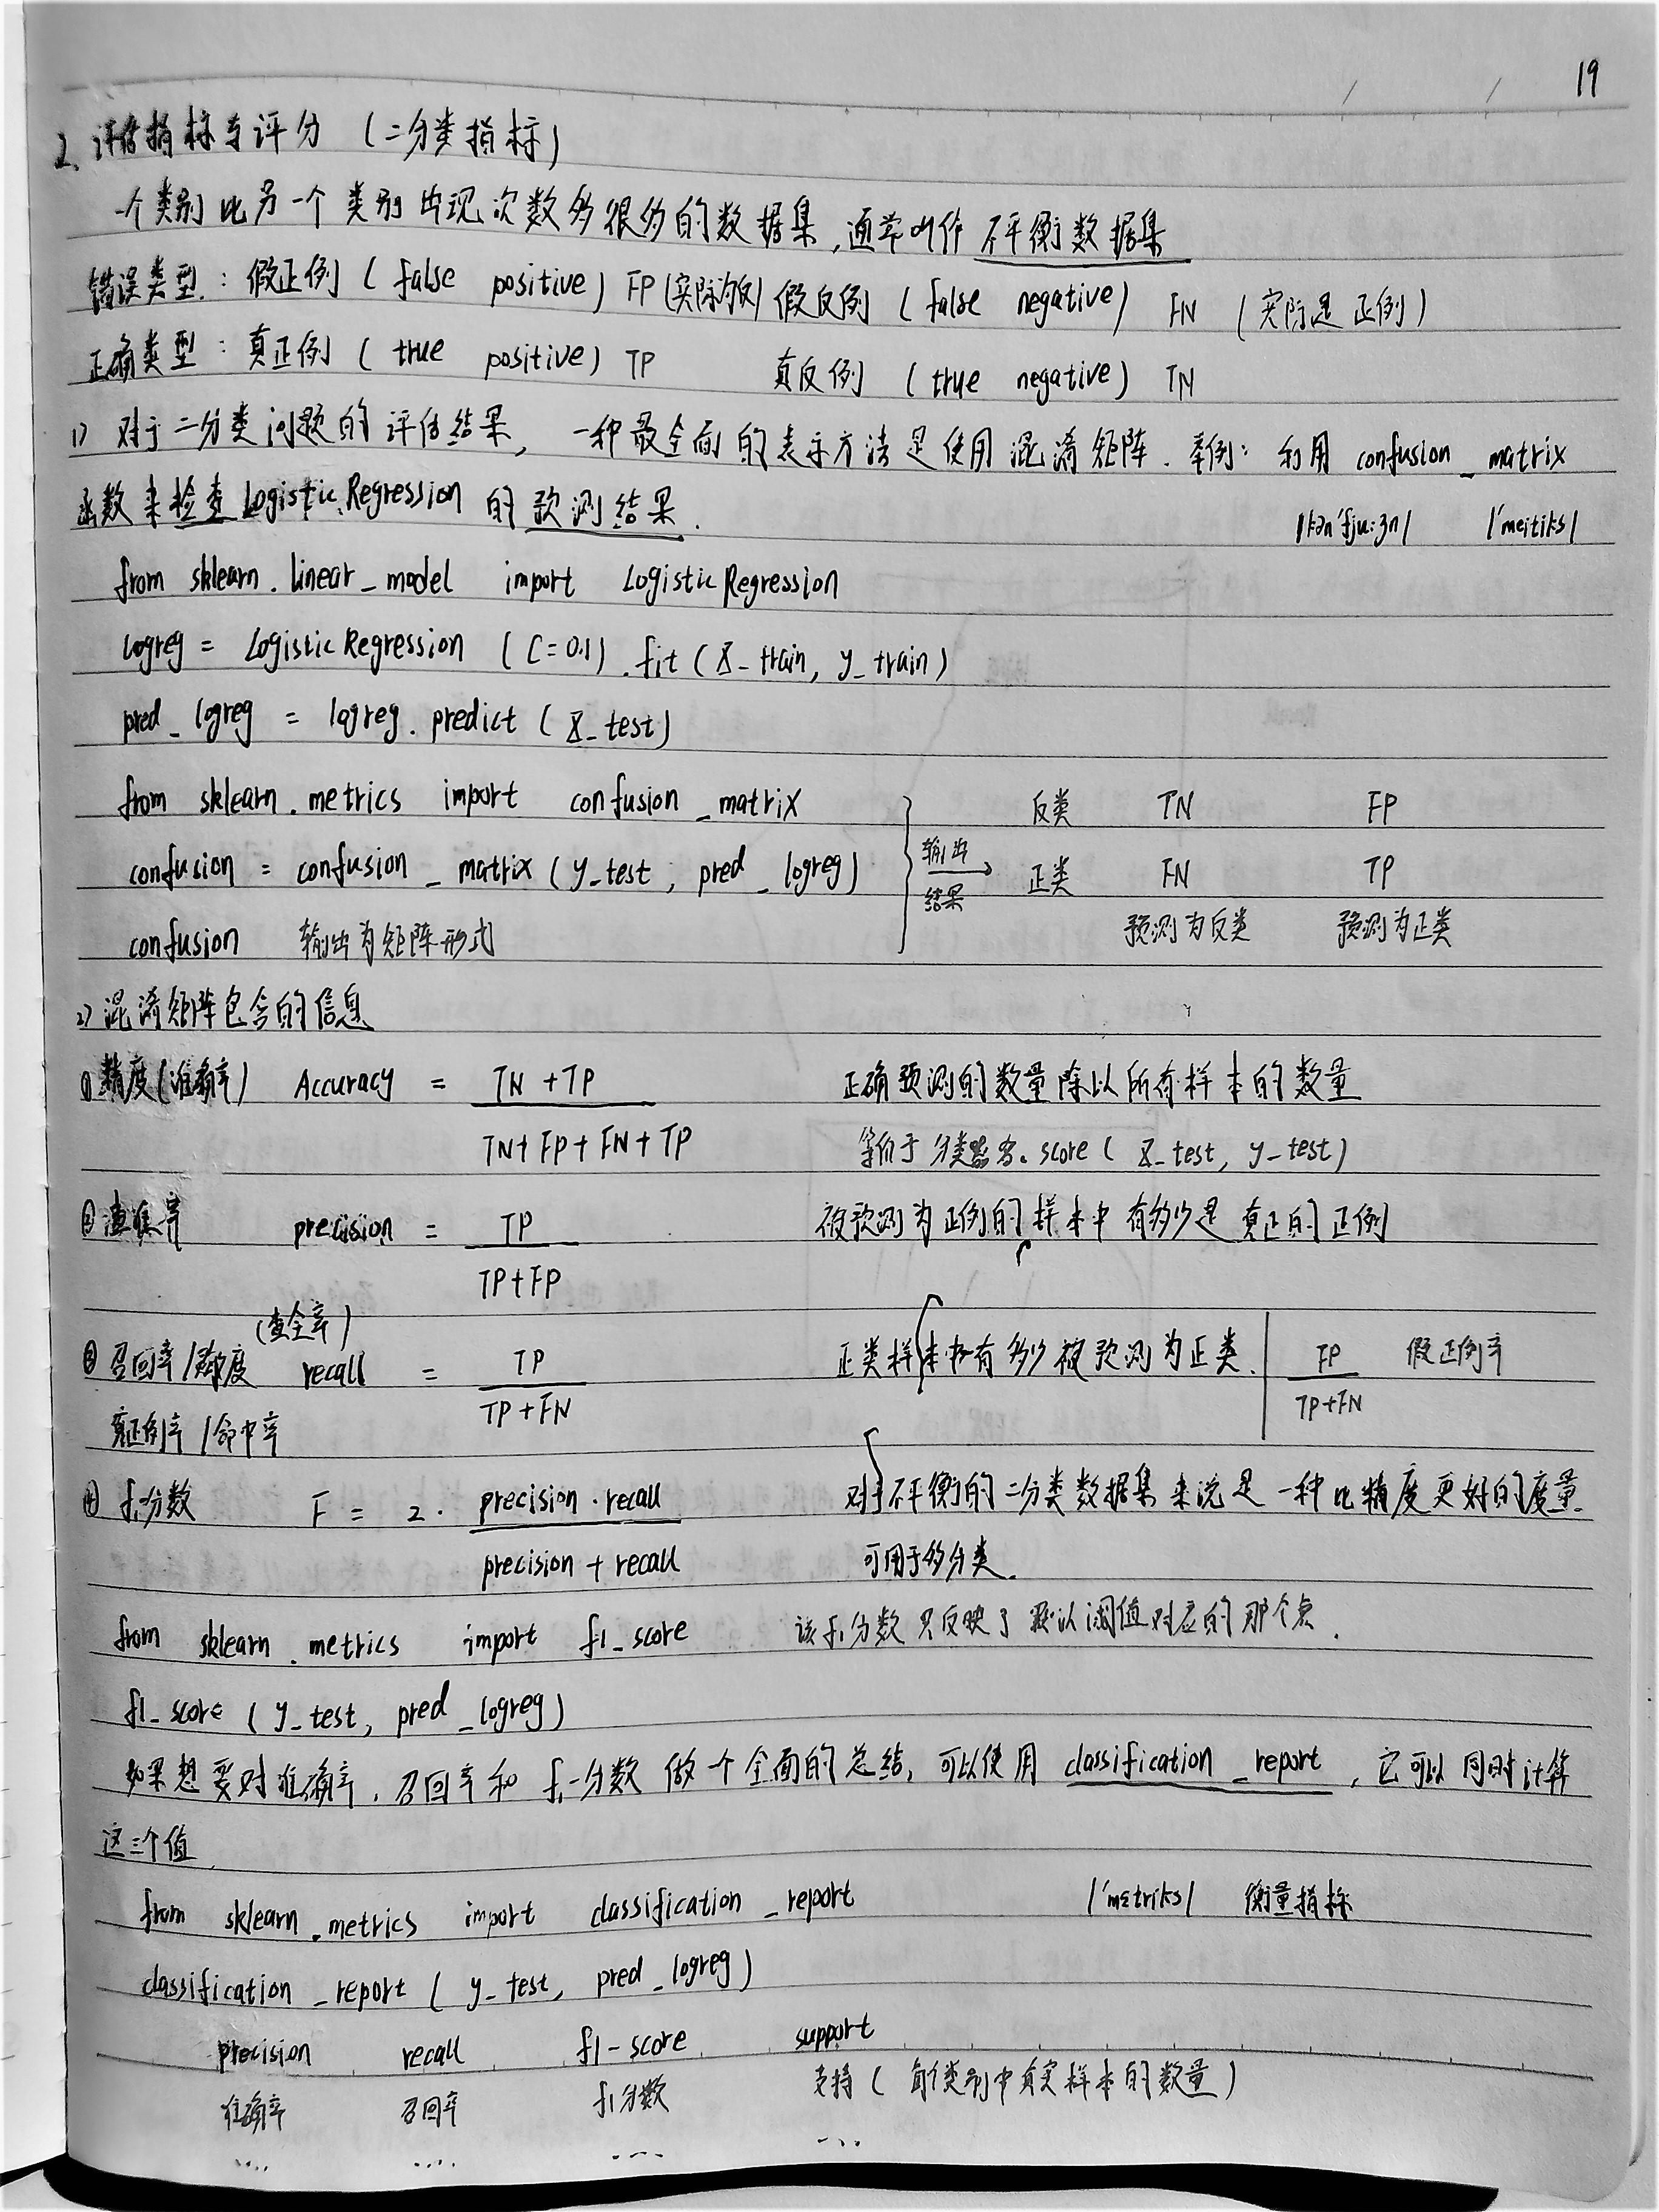 19
2、评估指标与评分 (二分类指标)
一个类别比另一个类别出现次数多很多的数据集,通常叫作不平衡数据集
错误类型: 假正例 ( false positive ) FP (实际为反) 假反例 ( false negative ) FN (实际是正例)
正确类型: 真正例 ( true positive ) TP 真反例 ( true negative ) TN
1) 对于二分类问题的评估结果, 一种最全面的表示方法是使用混淆矩阵. 举例: 利用 confusion_matrix
函数来检查LogisticRegression 的预测结果.
/kən'fju:ʒn/ /'meitiks/
from sklearn.linear_model import LogisticRegression
logreg = LogisticRegression (C=0.1).fit (X_train, y_train)
pred_logreg = logreg.predict (X_test)
from sklearn.metrics import confusion_matrix 反类 TN FP
confusion = confusion_matrix (y_test, pred_logreg) 输出结果 正类 FN TP
confusion 输出为矩阵形式 预测为反类 预测为正类
2) 混淆矩阵包含的信息
① 精度(准确率) Accuracy = TN+TP 正确预测的数量除以所有样本的数量
TN+FP+FN+TP 等价于 分类器名.score ( X_test, y_test)
② 查准率 precision = TP 被预测为正例的样本中有多少是真正的正例
TP+FP
(查全率)
③ 召回率/灵敏度 recall = TP 正类样本中有多少被预测为正类. FP 假正例率
TP+FN TP+FN
真正例率/命中率
④ f₁分数 F = 2 · precision·recall 对于不平衡的二分类数据集来说是一种比精度更好的度量.
precision + recall 可用于多分类.
from sklearn.metrics import f1_score 该f₁分数只反映了默认阈值对应的那个点.
f1_score (y_test, pred_logreg)
如果想要对准确率、召回率和 f₁-分数 做个全面的总结, 可以使用 classification_report, 它可以同时计算
这三个值
from sklearn.metrics import classification_report /'metriks/ 衡量指标
classification_report ( y_test, pred_logreg )
precision recall f1-score support
准确率 召回率 f1分数 支持 ( 每个类别中真实样本的数量 )
.... .... .... ....